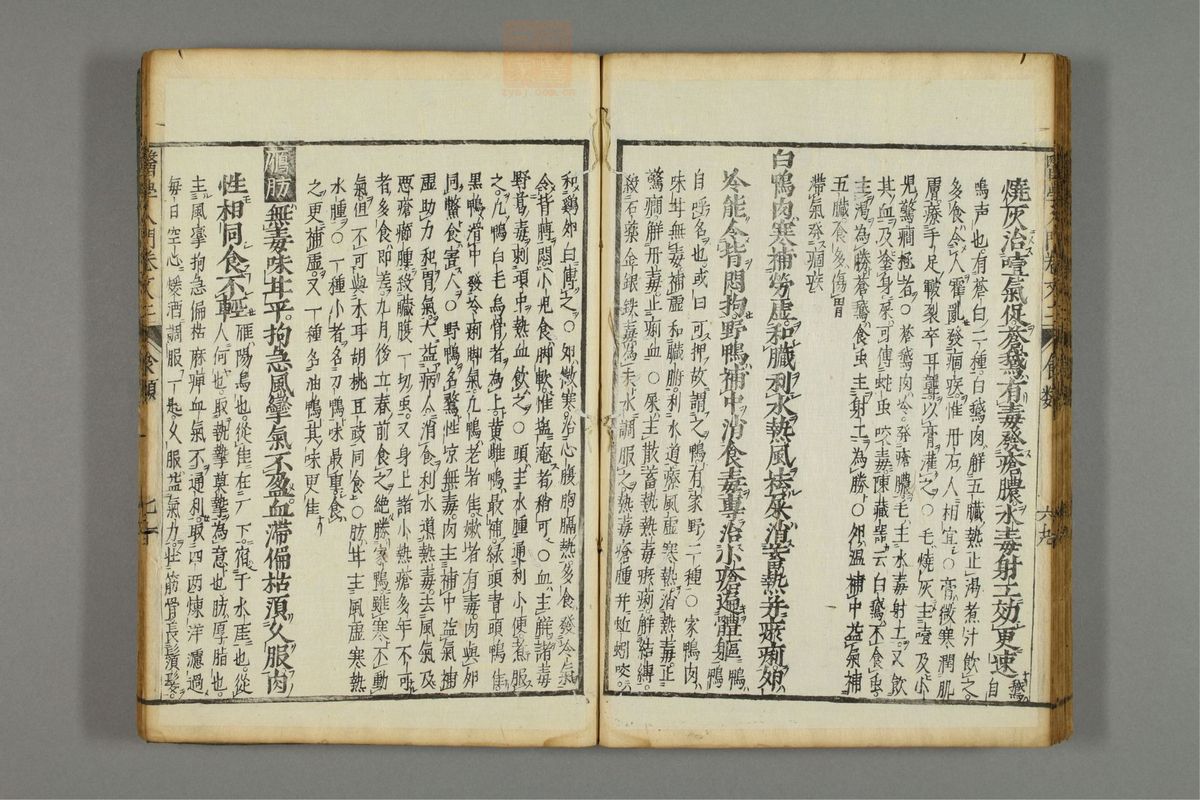 燒灰治噎氣促蒼鵞有毒發瘡膿水毒射工効更速鵞自
鳴声也有蒼白二種白鵞肉解五臟熱止渴煮汁飲之
多食令人霍亂發痼疾惟丹石人相宜○膏微寒潤肌
膚療手足皸裂卒耳聾以膏灌之○毛燒灰主噎及小
児驚癇極者○蒼鵞肉冷發瘡膿毛主水毒射工又飲
其血及塗身屎可傅蛇虫咬毒陳藏器云白鵞不食虫
主渴為勝蒼鵞食虫主射工為勝○卵温補中益氣補
五臟食多傷胃
滯氣發痼疾
白鴨肉寒補勞虚和臟利水熱風袪屎消蓄熱并瘀痢卵
冷能令背悶拘野鴨補中消食毒專治小瘡遍體軀鴨鴨
自呼名也或曰可押故謂之鴨有家野二種○家鴨肉
味甘無毒補虚和臟腑利水道療風虚寒熱消熱毒止
驚癇解丹毒止痢血○屎主散蓄熱熱毒瘀痢解結縛
殺石藥金銀鉄毒為末水調服之熱毒瘡腫并蚯蚓咬
和鷄卵白傅之○卵微寒治心腹胸膈熱多食發冷氣
令背膊悶小児食脚軟惟塩淹者稍可○血主解諸毒
野葛毒刺頭中熱血飲之○頭主水腫通利小便煮服
之凡鴨白毛烏骨者為上黄雌鴨最補緑頭青頭鴨佳
黒鴨滑中發冷痢脚氣凡鴨老者佳嫩者有毒肉與卵
同鱉食害人○野鴨名鶩性凉無毒肉主補中益氣補
虚助力和胃氣大益病人消食利水道熱毒去風氣及
悪瘡癤腫殺臟腹一切虫又身上諸小熱瘡多年不可
者多食即差九月後立春前食之絶勝家鴨雖寒不動
氣但不可與木耳胡桃豆豉同食○肪甘主風虚寒熱
水腫○一種小者名刀鴨味最重食
之更補虚又一種名油鴨其味更佳
鴈肪無毒味甘平拘急風攣氣不盈血滯偏枯須久服肉
性相同食不輕雁陽鳥也從隹在厂下宿于水厓也從
人何也取執摯莫摯為意也肪厚脂也
主風攣拘急偏枯麻痺血氣不通利取四両煉洋濾過
毎日空心煖酒調服一匙久服益氣力壮筋骨長鬚髮
醫學入門卷之二
食類